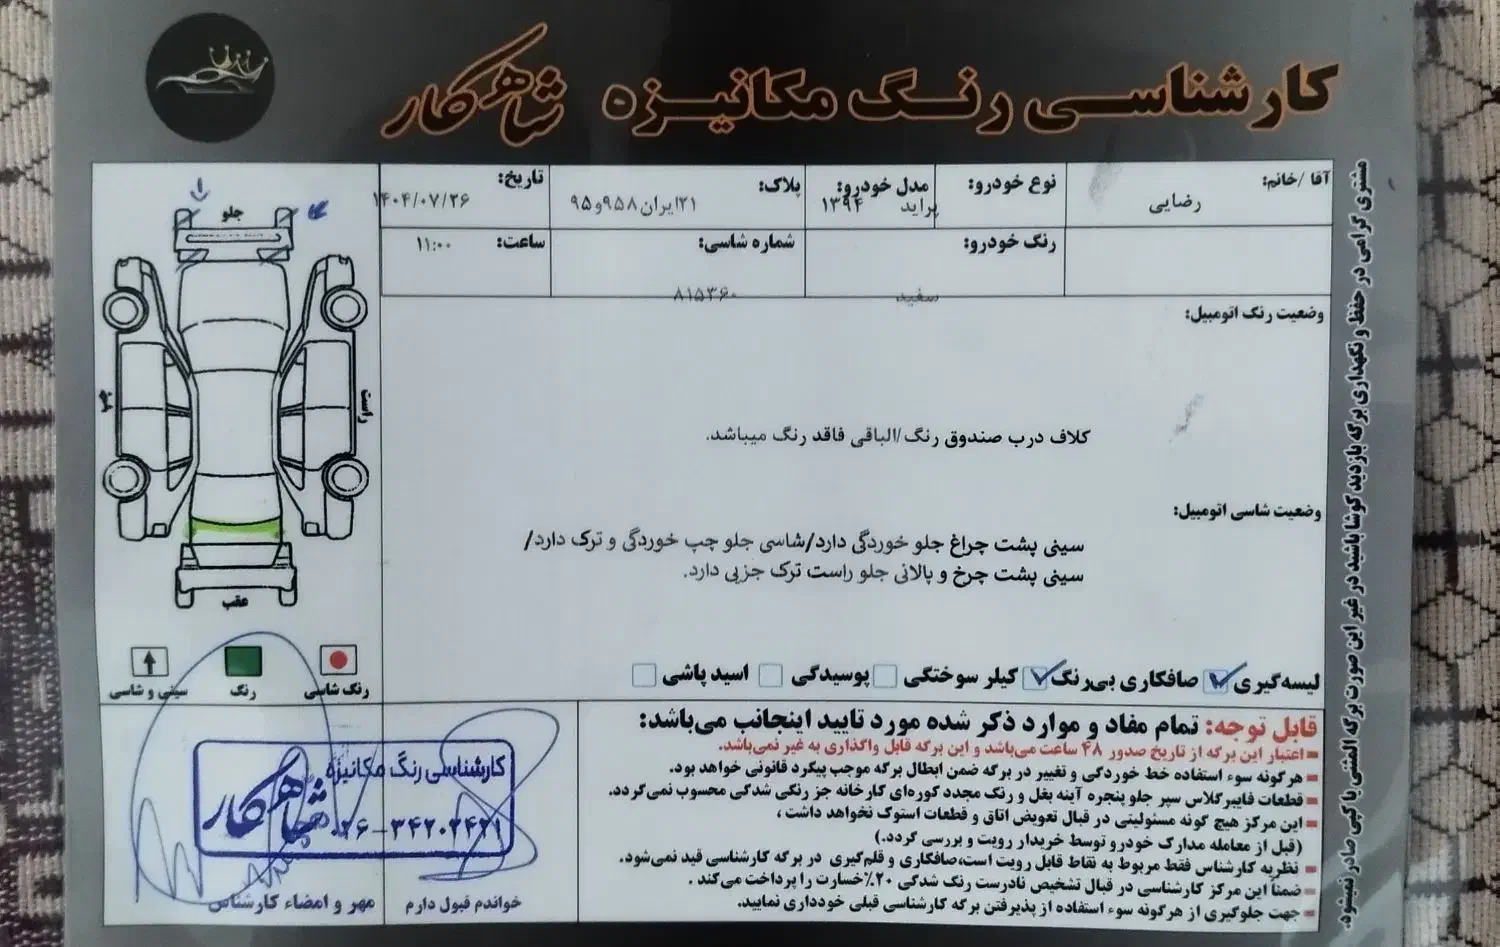 کارشناسی رنگ مکانیزه شاهکار
آقا /خانم: رضایی
نوع خودرو:
مدل خودرو: پراید ۱۳۹۴
پلاک: ۲۱ایران۹۵۸و۹۵
تاریخ: ۱۴۰۴/۰۷/۲۶
رنگ خودرو: سفید
شماره شاسی: ۸۱۵۳۶۰
ساعت: ۱۱:۰۰
جلو
چپ
راست
عقب
وضعیت رنگ اتومبیل:
کلاف درب صندوق رنگ/الباقی فاقد رنگ میباشد.
وضعیت شاسی اتومبیل:
سینی پشت چراغ جلو خوردگی دارد/شاسی جلو چپ خوردگی و ترک دارد/
سینی پشت چرخ و پالانی جلو راست ترک جزیی دارد.
لیسه‌گیری صافکاری بی‌رنگ کیلر سوختگی پوسیدگی اسید پاشی
رنگ شاسی
رنگ
سینی و شاسی
قابل توجه: تمام مفاد و موارد ذکر شده مورد تایید اینجانب می‌باشد:
اعتبار این برگه از تاریخ صدور ۴۸ ساعت می‌باشد و این برگه قابل واگذاری به غیر نمی‌باشد.
هرگونه سوء استفاده خط خوردگی و تغییر در برگه ضمن ابطال برگه موجب پیگرد قانونی خواهد بود.
قطعات فایبرگلاس سپر جلو پنجره آینه بغل و رنگ مجدد کوره‌ای کارخانه جز رنگی شدگی محسوب نمی‌گردد.
این مرکز هیچ گونه مسئولیتی در قبال تعویض اتاق و قطعات استوک نخواهد داشت ،
(قبل از معامله مدارک خودرو توسط خریدار رویت و بررسی گردد.)
نظریه کارشناس فقط مربوط به نقاط قابل رویت است،صافکاری و قلم‌گیری در برگه کارشناسی قید نمی‌شود.
ضمناً این مرکز کارشناسی در قبال تشخیص نادرست رنگ شدگی ۲۰٪خسارت را پرداخت می‌کند .
جهت جلوگیری از هرگونه سوء استفاده از پذیرفتن برگه کارشناسی قبلی خودداری نمایید.
کارشناسی رنگ مکانیزه
شاهکار
۰۲۶-۳۴۲۰۲۴۲۱
خواندم قبول دارم
مهر و امضاء کارشناس
مشتری گرامی در حفظ و نگهداری برگه بازدید کوشا باشید در غیر این صورت برگه المثنی یا کپی صادر نمیشود.